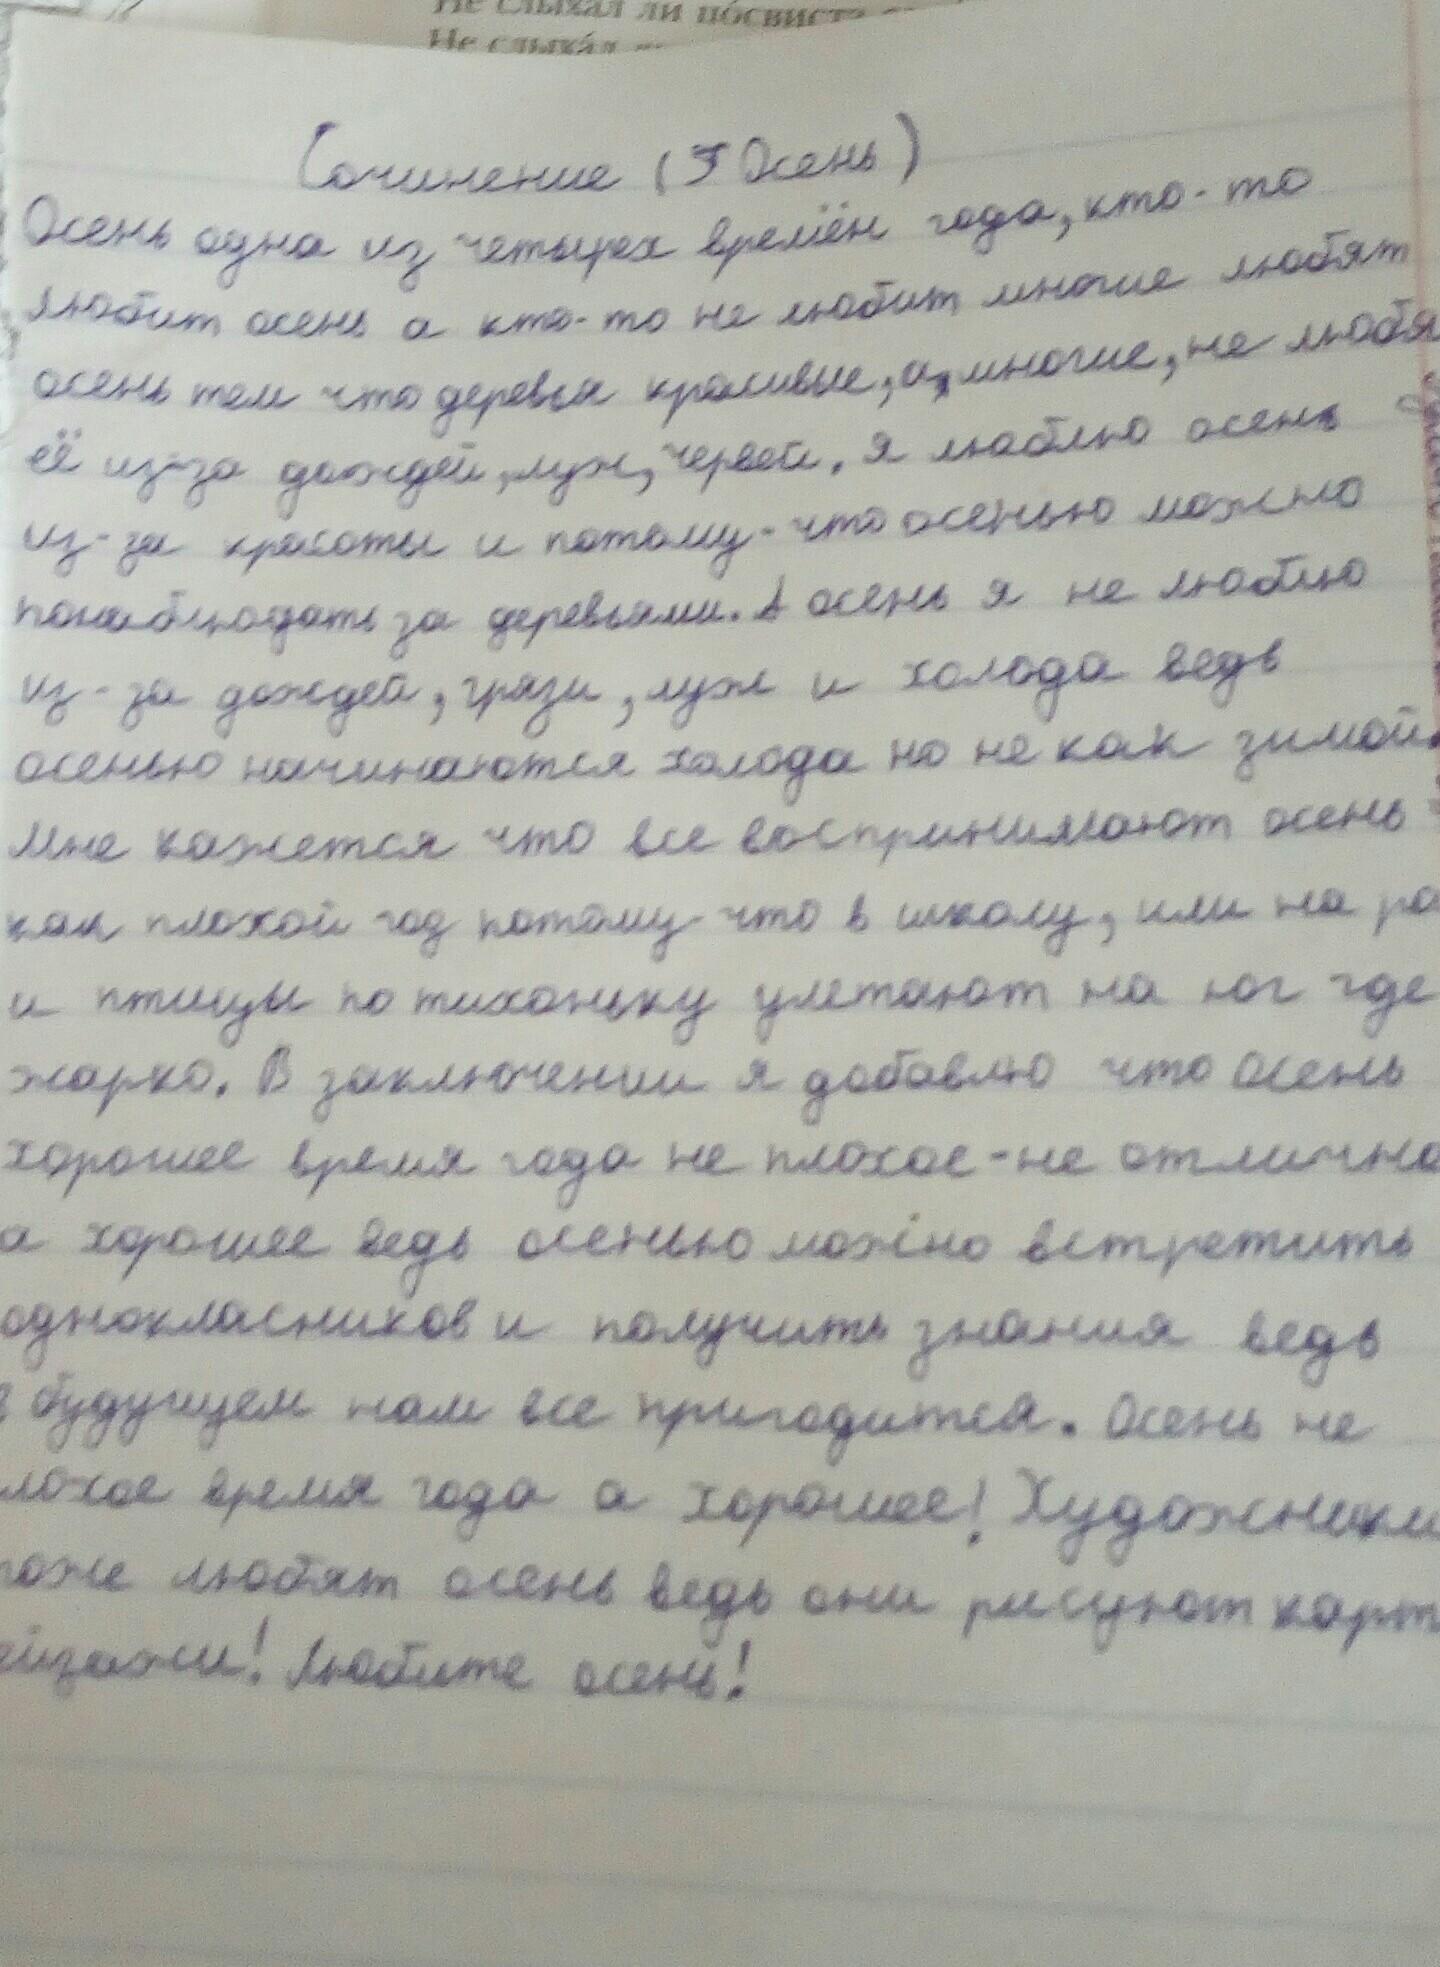 Не слыхал ли посвиста
Не слыхал
Сочинение ( Осень)
Осень одна из четырех времён года, кто-то
любит осень а кто-то не любит многие любят
осень тем что деревья красивые, а, многие, не любя
её из-за дождей, луж, червей. Я люблю осень
из-за красоты и потому-что осенью можно
понаблюдать за деревьями. А осень я не люблю
из-за дождей, грязи, луж и холода ведь
осенью начинаются холода но не как зимой.
Мне кажется что все воспринимают осень
как плохой год потому-что в школу, или на ра
и птицы по тихоньку улетают на юг где
жарко. В заключении я добавлю что осень
хорошее время года не плохое-не отлично
а хорошее ведь осенью можно встретить
однокласников и получить знания ведь
в будущем нам все пригодится. Осень не
лохое время года а хорошее! Художники
тоже любят осень ведь они рисуют карт
ейзажи! Любите осень!